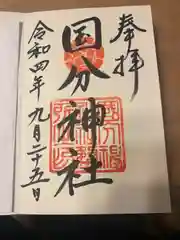 奉拝
国分神社
令和四年九月二十五日